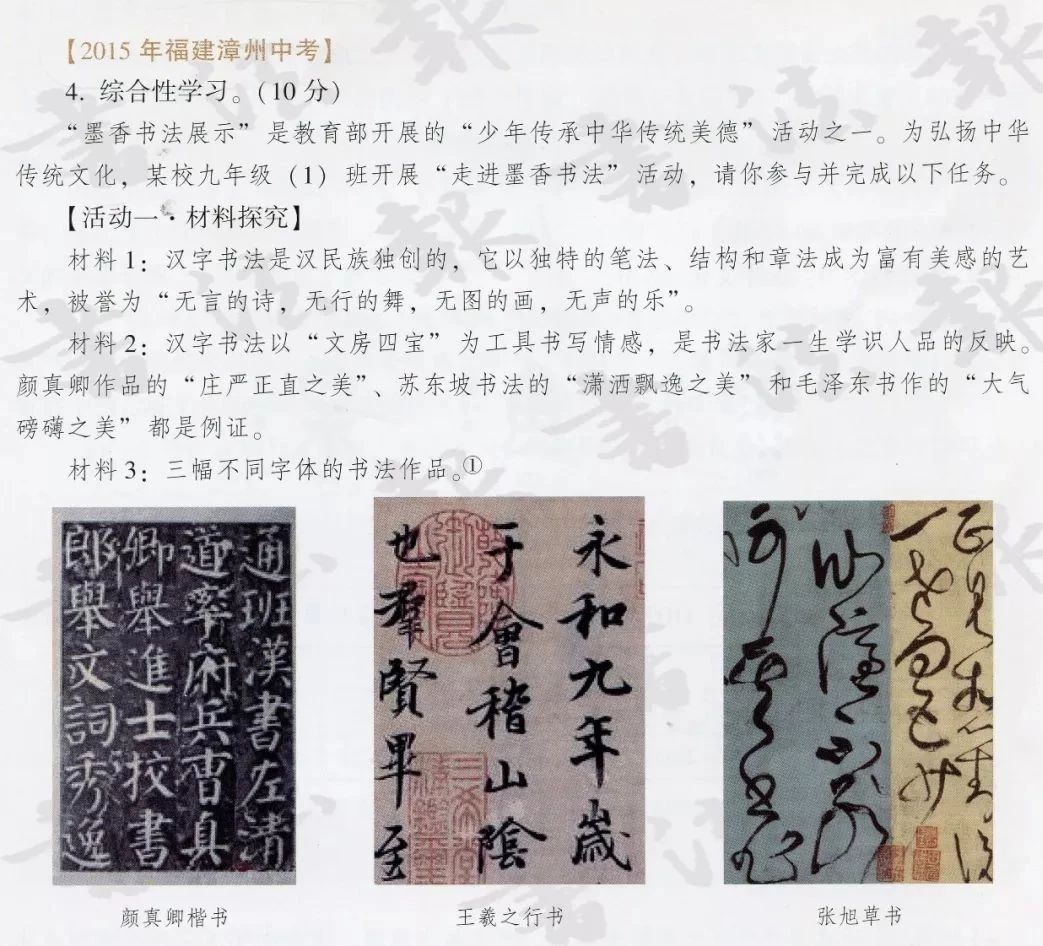 【2015 年福建漳州中考】
4. 综合性学习。(10 分)
“墨香书法展示” 是教育部开展的 “少年传承中华传统美德” 活动之一。为弘扬中华
传统文化，某校九年级（1）班开展 “走进墨香书法” 活动，请你参与并完成以下任务。
【活动一·材料探究】
材料 1：汉字书法是汉民族独创的，它以独特的笔法、结构和章法成为富有美感的艺
术，被誉为 “无言的诗，无行的舞，无图的画，无声的乐”。
材料 2：汉字书法以 “文房四宝” 为工具书写情感，是书法家一生学识人品的反映。
颜真卿作品的 “庄严正直之美”、苏东坡书法的 “潇洒飘逸之美” 和毛泽东书作的 “大气
磅礴之美” 都是例证。
材料 3：三幅不同字体的书法作品。①
通班漢書左清
道率府兵曹真
卿舉進士校書
郎舉文詞秀逸
永和九年歲
于會稽山陰
也羣賢畢至
颜真卿楷书
王羲之行书
张旭草书